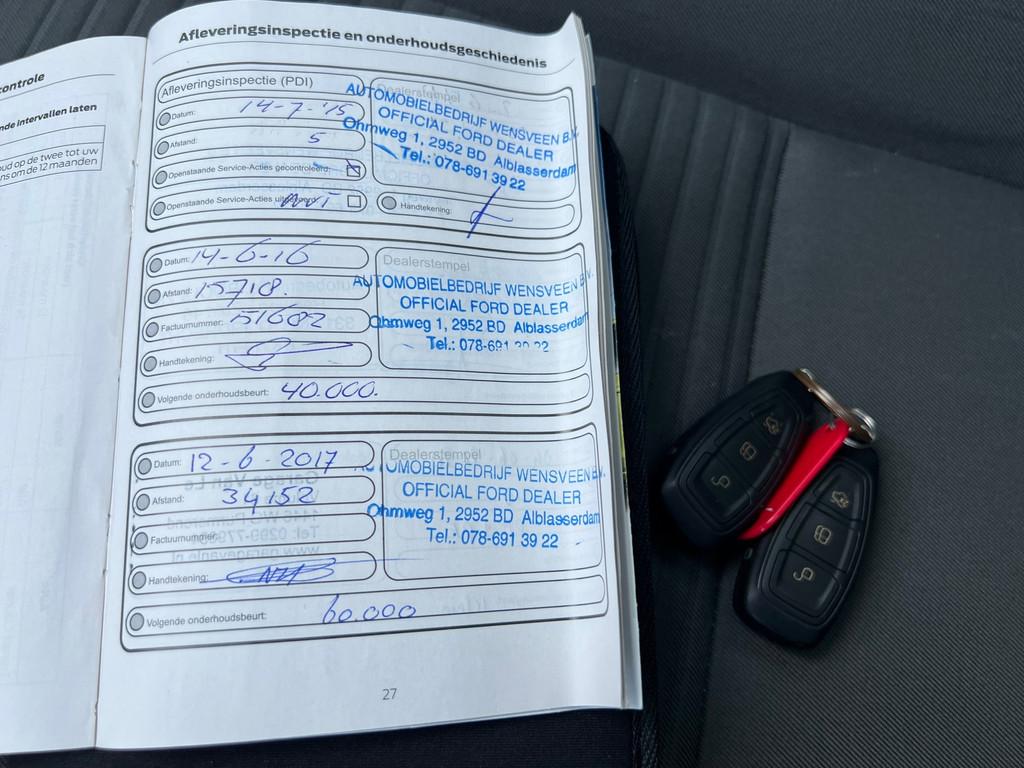 controle
nde intervallen laten
oud op de twee tot uw
ns om de 12 maanden
Afleveringsinspectie en onderhoudsgeschiedenis
Afleveringsinspectie (PDI)
Datum: 14-7-'15
Afstand: 5
Openstaande Service-Acties gecontroleerd:
Openstaande Service-Acties uitgevoerd:
Dealerstempel
AUTOMOBIELBEDRIJF WENSVEEN B.V.
OFFICIAL FORD DEALER
Ohmweg 1, 2952 BD Alblasserdam
Tel.: 078-691 39 22
Handtekening:
Datum: 14-6-16
Afstand: 15718.
Factuurnummer: 51682
Handtekening:
Dealerstempel
AUTOMOBIELBEDRIJF WENSVEEN B.V.
OFFICIAL FORD DEALER
Ohmweg 1, 2952 BD Alblasserdam
Tel.: 078-691 39 22
Volgende onderhoudsbeurt: 40.000.
Datum: 12-6-2017
Afstand: 34152
Factuurnummer:
Handtekening:
Dealerstempel
AUTOMOBIELBEDRIJF WENSVEEN B.V.
OFFICIAL FORD DEALER
Ohmweg 1, 2952 BD Alblasserdam
Tel.: 078-691 39 22
Volgende onderhoudsbeurt: 60.000
27